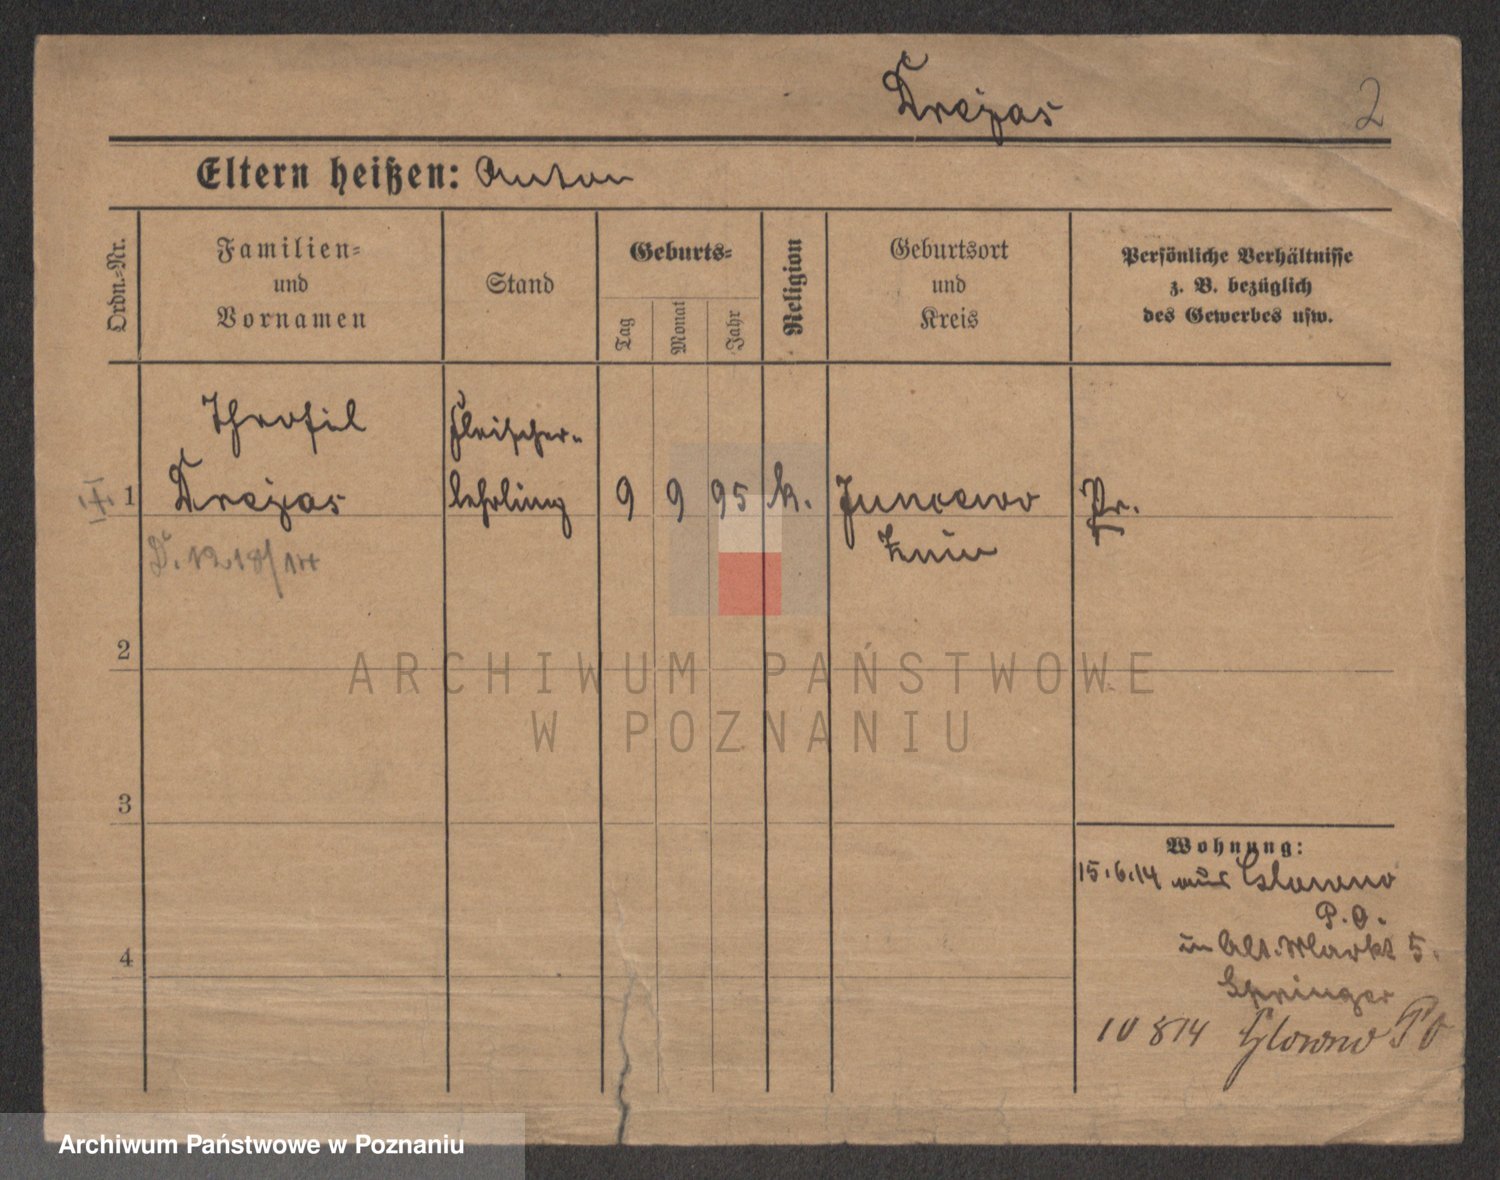 Drejas
2
Eltern heißen: Anton
Ordn.-Nr.
Familien-
und
Vornamen
Stand
Geburts-
Tag
Monat
Jahr
Religion
Geburtsort
und
Kreis
Persönliche Verhältnisse
z. B. bezüglich
des Gewerbes usw.
Theofil
Fleischer-
1 Drejas lehrling 9 9 95 k. Juncewo Pr.
Znin
D. 1218/14
2
ARCHIWUM PAŃSTWOWE
W POZNANIU
3
Wohnung:
15.6.14 aus Glowno
P. O.
4
in Alt. Markt 5.
Springer
10 8 14 Glowno PO
Archiwum Państwowe w Poznaniu